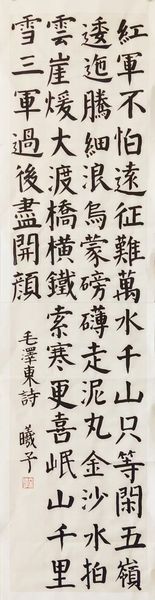 紅軍不怕遠征難萬水千山只等閑五嶺
逶迤騰細浪烏蒙磅礴走泥丸金沙水拍
雲崖煖大渡橋橫鐵索寒更喜岷山千里
雪三軍過後盡開顔
毛澤東詩 曦予